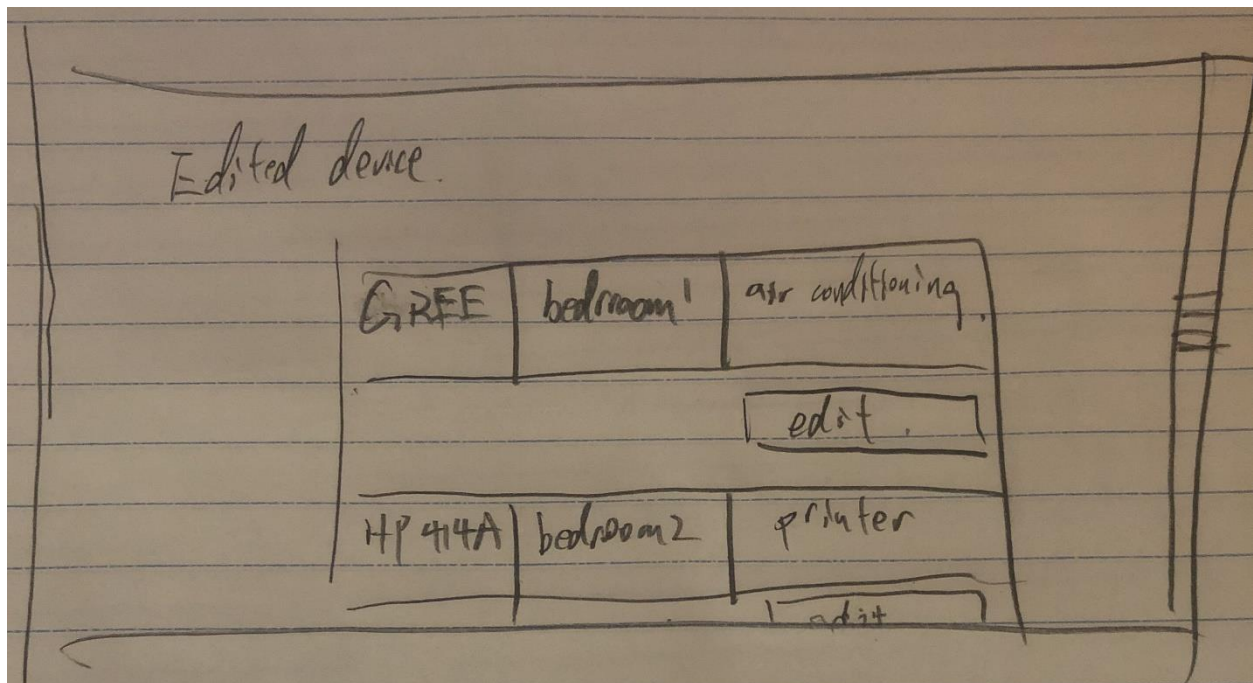 Edited device.
GREE bedroom1 air conditioning.
edit.
HP 414A bedroom2 printer
edit